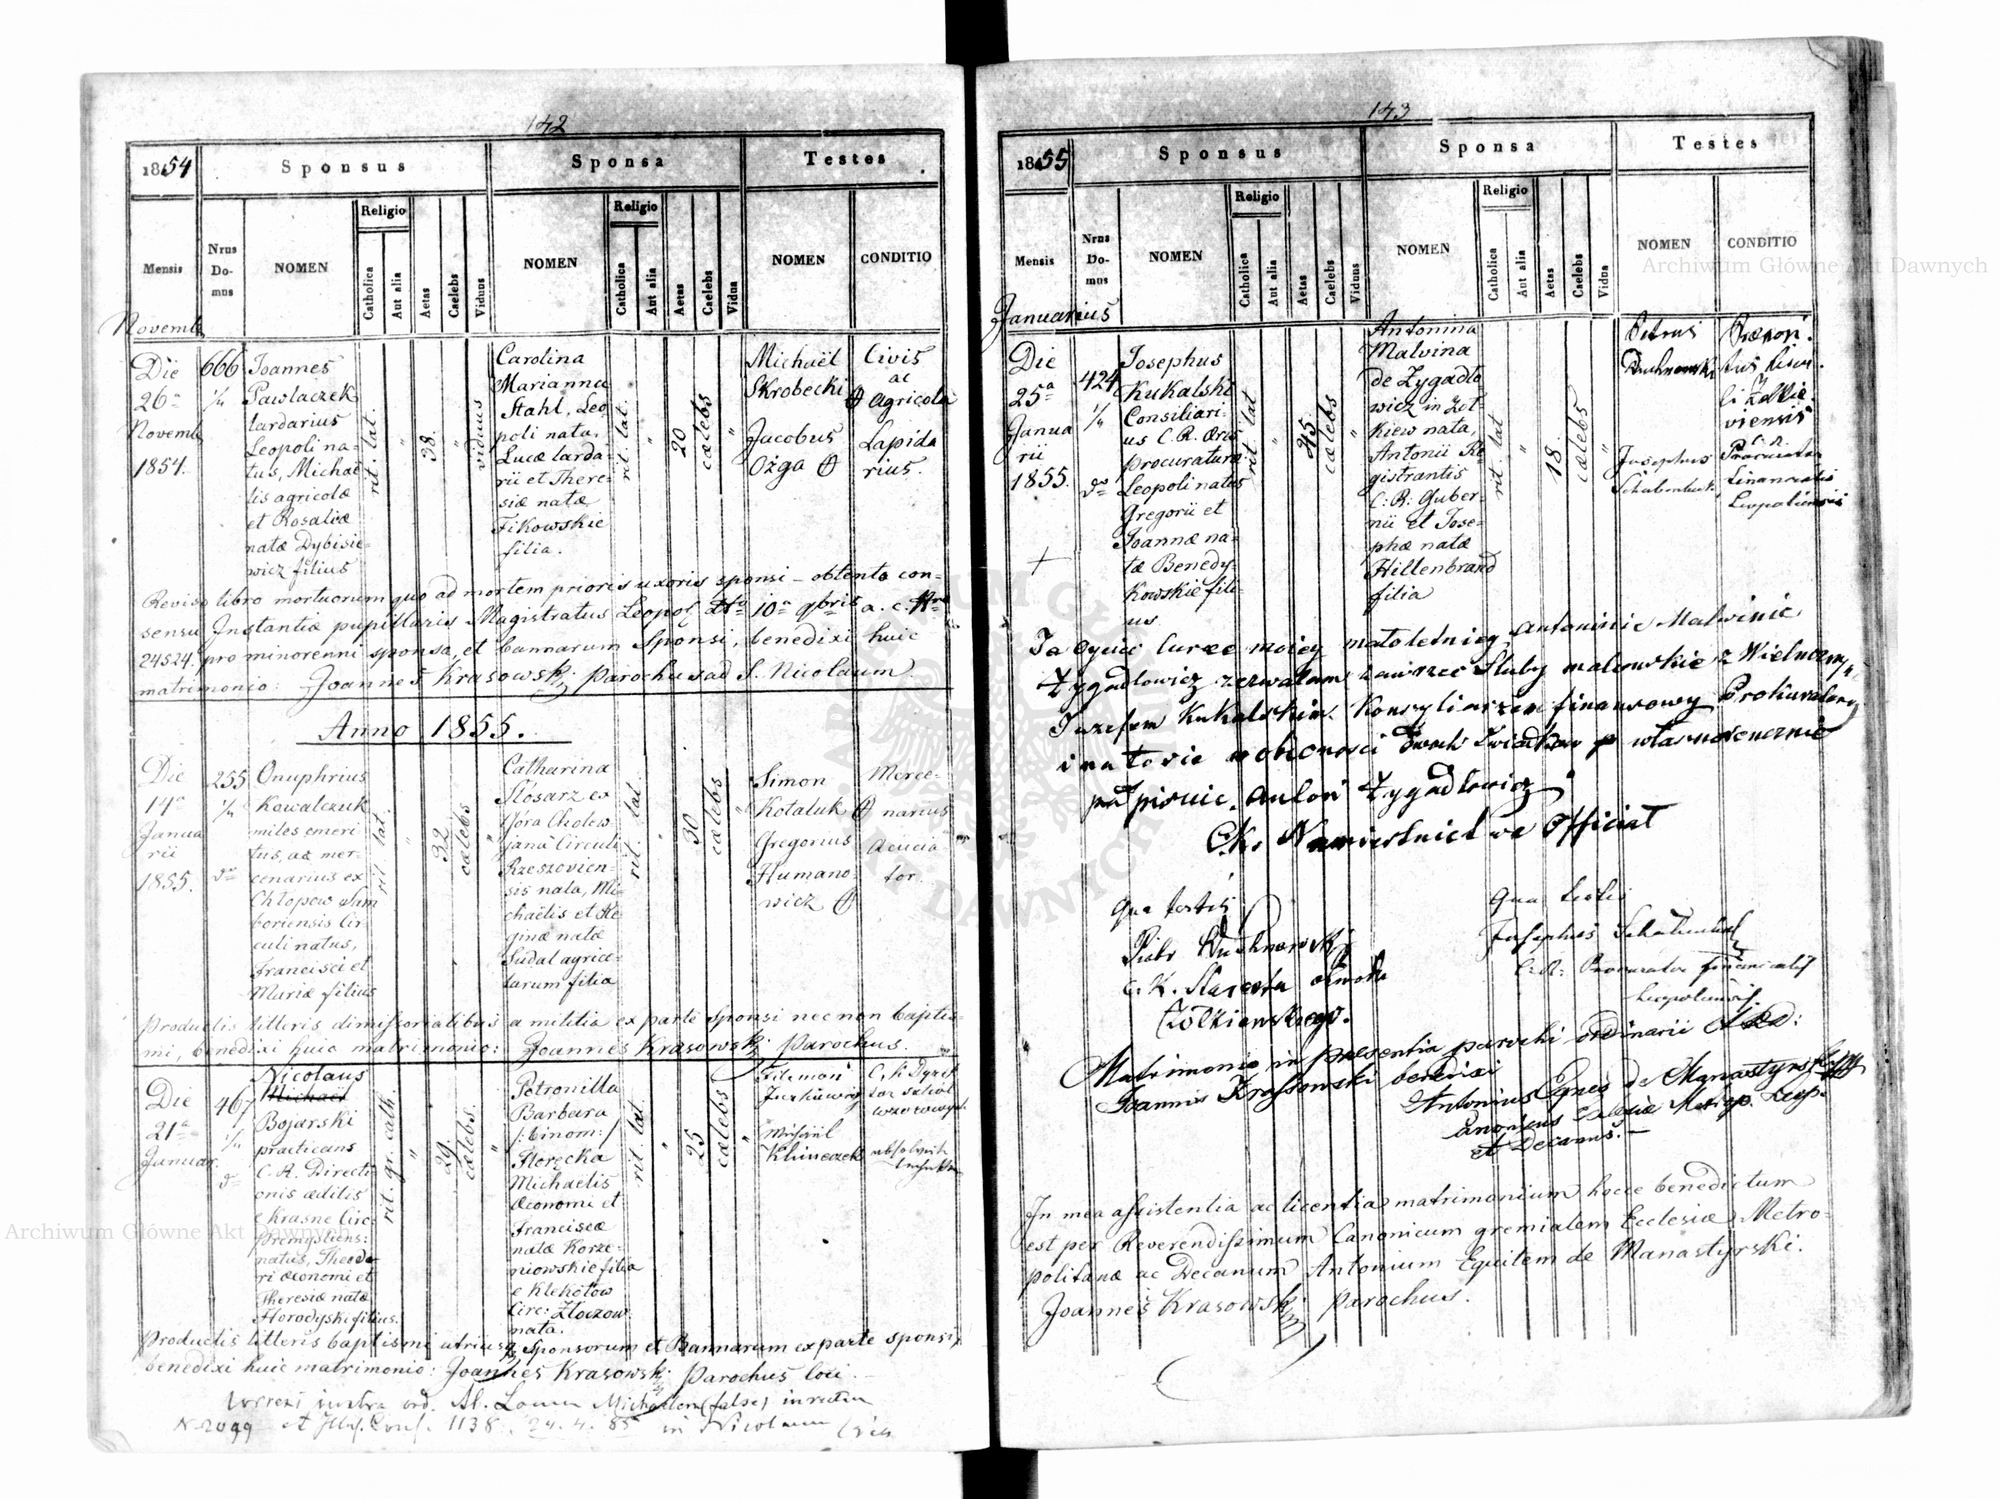 142
1854
Sponsus
Sponsa
Testes
Mensis
Nrus Do- mus
NOMEN
Religio
Catholica
Aut alia
Aetas
Caelebs
Viduus
NOMEN
Religio
Catholica
Aut alia
Aetas
Caelebs
Vidua
NOMEN
CONDITIO
Novemb
Die
26a
Novemb
1854.
666
1/4
Joannes
Pawlaczek
lardarius
Leopoli na-
tus, Michaë
lis agricolæ
et Rosaliæ
natæ Dybisie-
wicz filius
rit. lat.
"
38.
"
viduus
Carolina
Marianna
Stahl, Leo
poli nata,
Lucæ larda-
rii et There-
siæ natæ
Fikowskie
filia.
rit. lat.
"
20
cælebs
"
Michaël
Skrobecki
Jacobus
Ożga
Civis
ac
agricola
Lapida
rius.
Reviso libro mortuorum quo ad mortem prioris uxoris sponsi – obtento con-
sensu Instantiæ pupillaris Magistratus Leopol 10a 9bris a. c.
24524. pro minorenni sponsa, et bannorum Sponsi, benedixi huic
matrimonio: Joannes Krasowski Parochus ad S. Nicolaum.
Anno 1855.
Die
14a
Janua
rii
1855.
255
1/4
Onuphrius
Kowalczuk
miles emeri
tus, ac mer-
cenarius ex
Chłopow Sam
boriensis Cir-
culi natus,
Francisci et
Mariæ filius
rit. lat.
"
32
cælebs
"
Catharina
Slosarz ex
Góra
jana Circuli
Rzeszovien-
sis nata, Mi-
chaëlis et Re
ginæ natæ
Sudal agrico-
larum filia
rit. lat.
"
30
cælebs
"
Simon
Kotaluk
Gregorius
Humano-
wicz
Merce-
narius
Acucia
tor.
Productis litteris dimissorialibus a militia ex parte sponsi nec non baptis-
mi, benedixi huic matrimonio: Joannes Krasowski Parochus.
Die
21a
Januar.
467
1/4
Nicolaus
Michael
Bojarski
practicans
C. R. Directi
onis ædilis
e Krasne Circ:
Premysliens:
natus, Theodo
ri œconomi et
Theresiæ natæ
Horodyski filius.
rit. gr. cath.
"
29.
cælebs.
"
Petronilla
Barbara
/:binom:/
Florecka
Michaelis
œconomi et
Franciscæ
natæ Korze-
niowskie filia
e Klekotow
Circ: Złoczow
nata.
rit. lat.
"
25
cælebs
"
Filemon
Michaël
Klimeczek
Productis litteris baptismi utriusq. Sponsorum et Bannorum ex parte sponsi,
benedixi huic matrimonio: Joannes Krasowski Parochus loci.
Correxi juxta ord. Michaelem (false) in
1138. 24. 4. 85 in Nicolaum
143
1855
Sponsus
Sponsa
Testes
Mensis
Nrus Do- mus
NOMEN
Religio
Catholica
Aut alia
Aetas
Caelebs
Viduus
NOMEN
Religio
Catholica
Aut alia
Aetas
Caelebs
Vidua
NOMEN
CONDITIO
Januarius
Die
25a
Janua
rii
1855.
424
1/4
Josephus
Kukalski
Consiliari-
us C. R.
procuraturæ
Leopoli natus
Gregorii et
Joannæ na-
tæ Benedy-
kowskie fili-
us.
rit. lat
"
45
cælebs
"
Antonina
Malvina
de Zygadło
wicz in Żoł-
kiew nata,
Antonii Re
gistrantis
C: R: Guber
nii et Jose-
phæ natæ
Hiltenbrand
filia
rit. lat
"
18.
cælebs
"
Petrus
Josephus
viensis
C. R.
Procurator
Financialis
Leopoliensis
Ja Oyciec Curce mojey małoletniey Antoninie Malwinie
Zygadłowicz zezwalam zawrzeć Śluby małżeńskie z Wielmożnym
Juzefem Kukalskim Konsyliarzem finansowey Prokuratury
i na to się w obecności dwóch świadków własnoręcznie
podpisuie. Antoni Zygadłowicz
C.K. Namiestnictwa Officiał
Qua testis
Piotr
C. K. Starosta obwodu
Żółkiewskiego.
Qua testis
Josephus
C.R. Procurator financialis
Leopoliensis.
Matrimonio in presentia parochi ordinarii
Joannis Krasowski benedixi
Antonius Eques de Manastyrski
Canonicus Ecclesiæ Metrop. Leop.
et Decanus.–
In mea assistentia ac licentia matrimonium hocce benedictum
est per Reverendissimum Canonicum gremialem Ecclesiæ Metro-
politanæ ac Decanum Antonium Equitem de Manastyrski.
Joannes Krasowski Parochus.
Archiwum Główne Akt Dawnych
Archiwum Główne Akt Dawnych